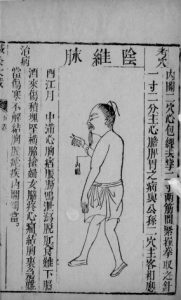 考穴
內關二穴心包經去掌二寸兩筋間緊握拳取之針
一寸二分主心膽脾胃之病與公孫二穴主客相應
陰維脈
內關
治病
西江月 中滿心胸痞脹腸鳴泄瀉脫肛食難下膈
酒來傷積塊堅橫脇搶婦女脇疼心痛結胸裏急難
當傷寒不解結胸膛瘧疾內關獨當